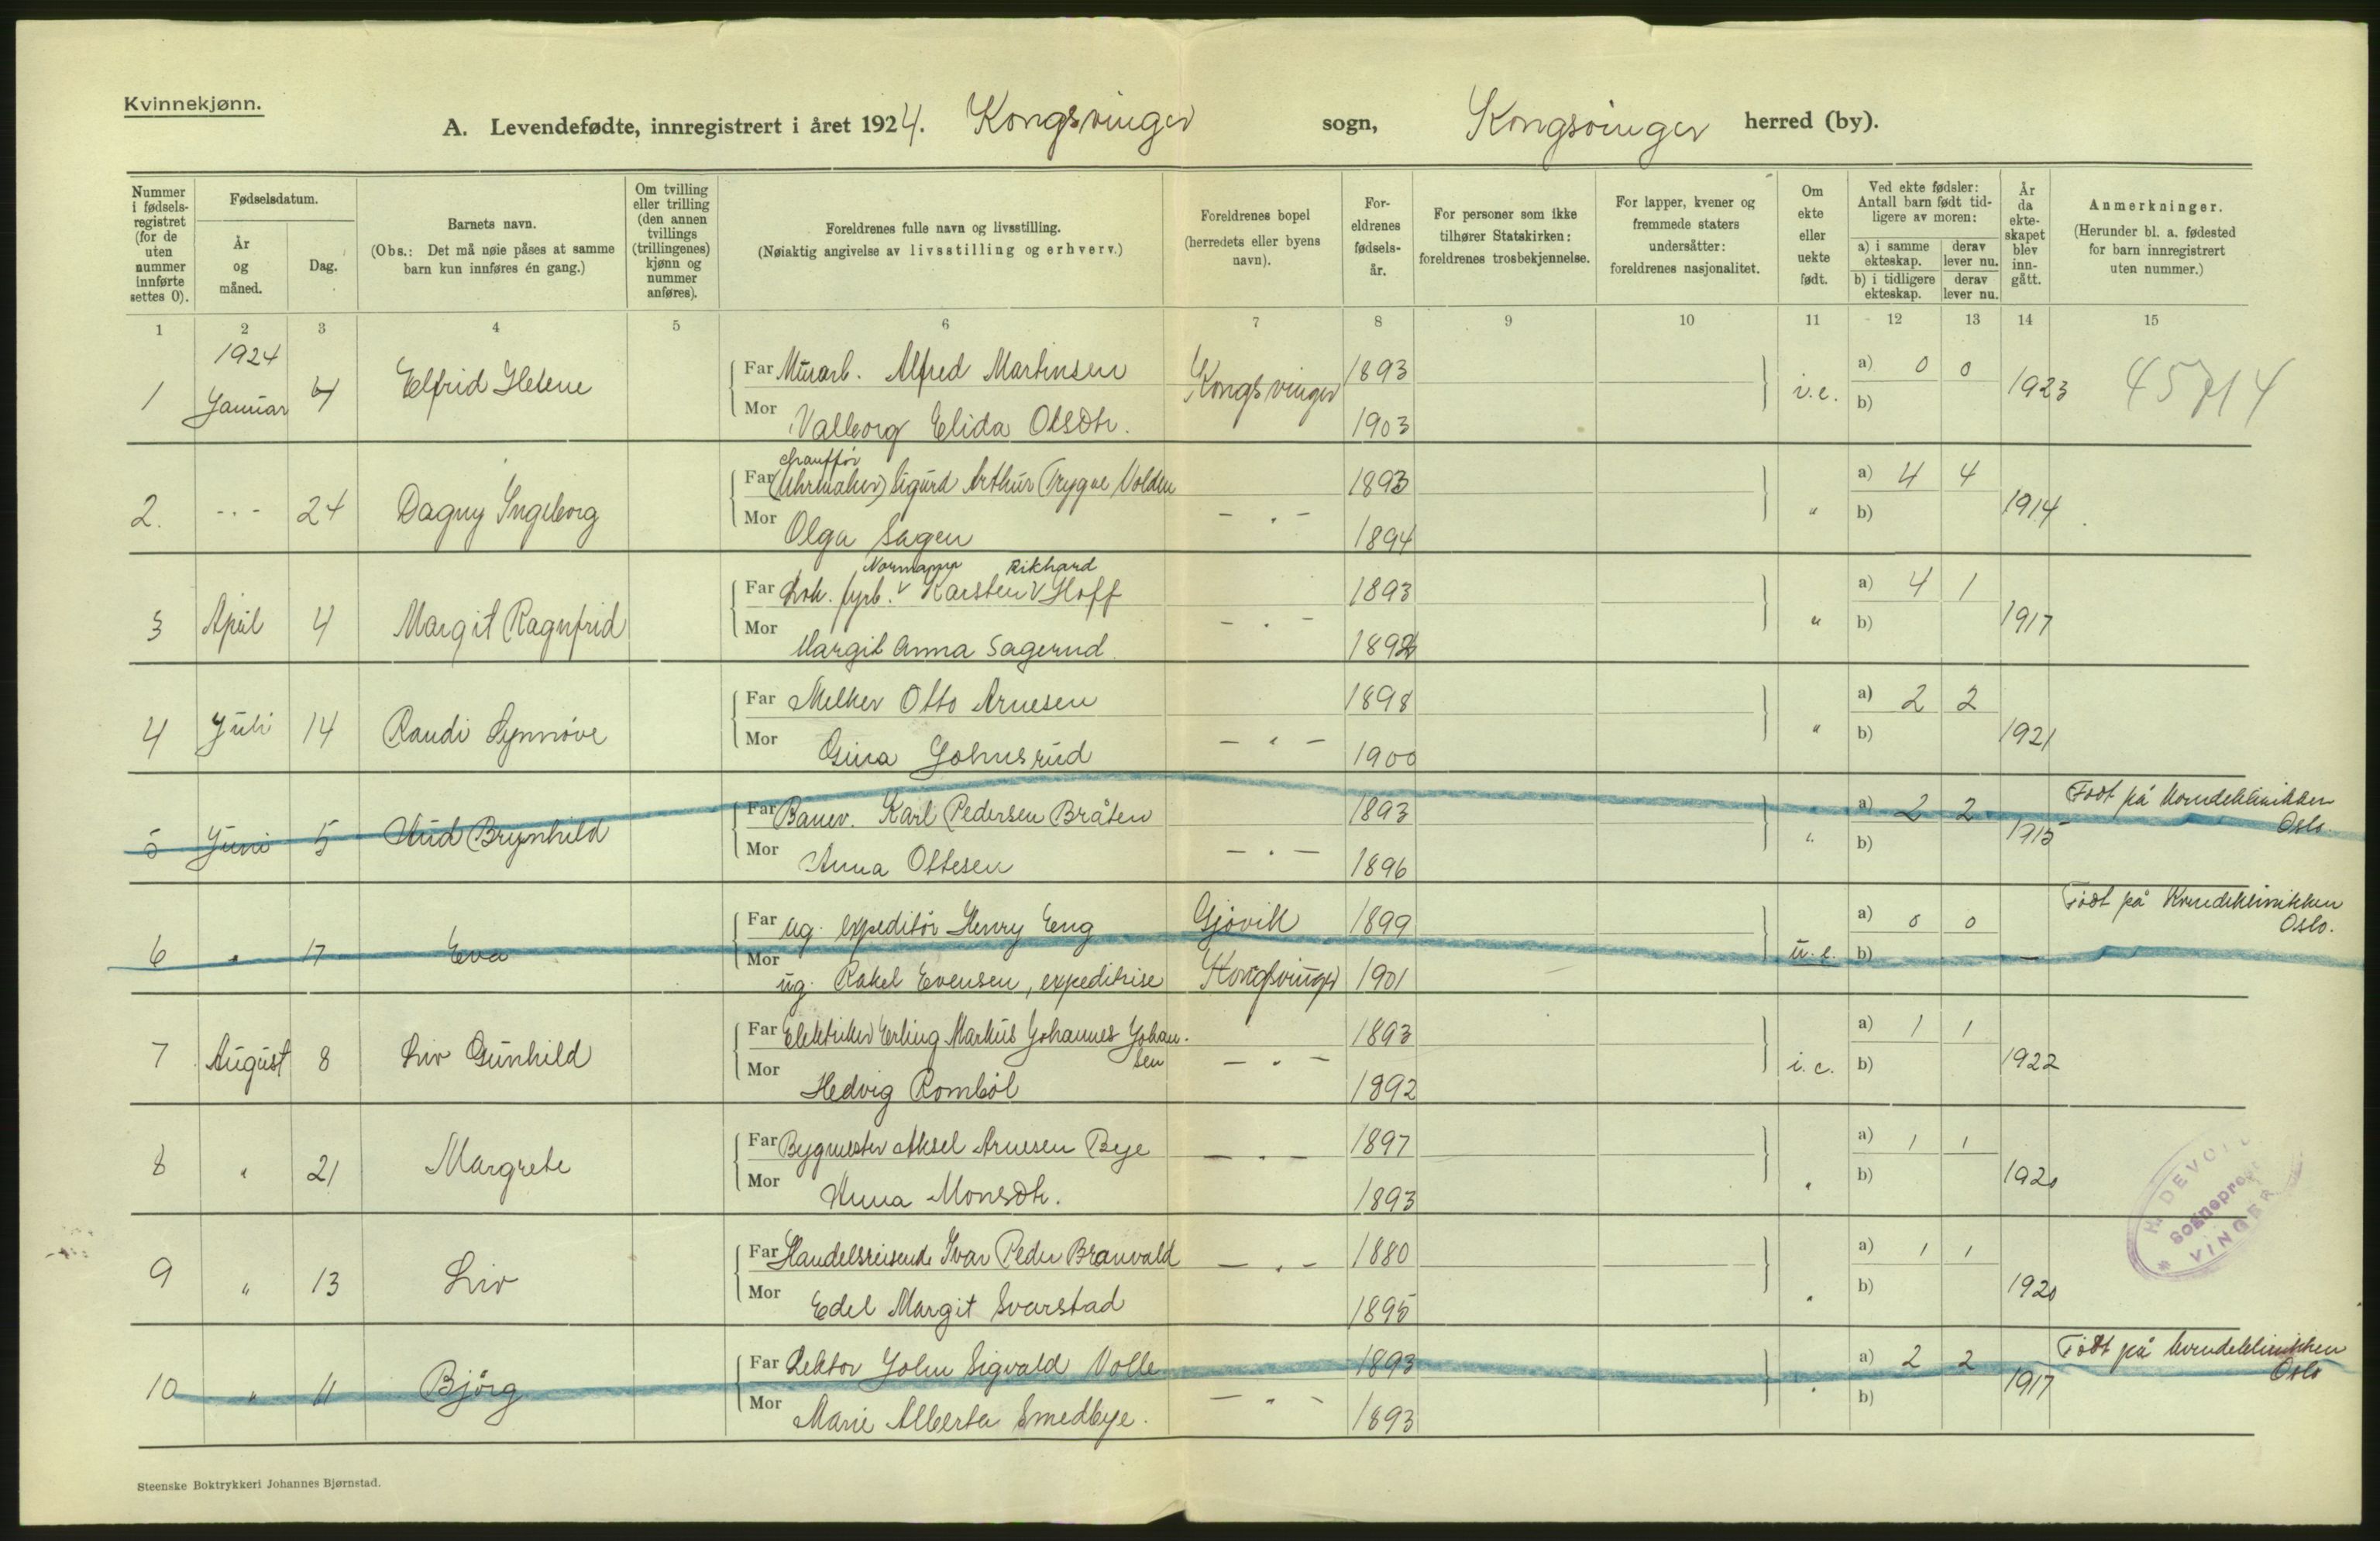 Kvinnekjønn.
A. Levendefødte, innregistrert i året 1924. Kongsvinger sogn, Kongsvinger herred (by).
Nummer i fødselsregistret (for de uten nummer innførte settes 0).
Fødselsdatum.
År og måned.
Dag.
Barnets navn.
(Obs.: Det må nøie påses at samme barn kun innføres én gang.)
Om tvilling eller trilling (den annen tvillings (trillingenes) kjønn og nummer anføres).
Foreldrenes fulle navn og livsstilling.
(Nøiaktig angivelse av livsstilling og erhverv.)
Foreldrenes bopel (herredets eller byens navn).
Foreldrenes fødselsår.
For personer som ikke tilhører Statskirken: foreldrenes trosbekjennelse.
For lapper, kvener og fremmede staters undersåtter: foreldrenes nasjonalitet.
Om ekte eller uekte født.
Ved ekte fødsler: Antall barn født tidligere av moren:
a) i samme ekteskap. derav lever nu.
b) i tidligere ekteskap. derav lever nu.
År da ekteskapet blev inngått.
Anmerkninger.
(Herunder bl. a. fødested for barn innregistrert uten nummer.)
1 2 3 4 5 6 7 8 9 10 11 12 13 14 15
1924
1 Januar 4 Elfrid Helene Far Murarb. Alfred Martinsen Kongsvinger 1893 i.e. a) 0 0 1923
Mor Valborg Elida Olsdtr. 1903 b)
chauffør
2. -"- 24 Dagny Ingeborg Far (Uhrmaker) Sigurd Arthur Trygve Volden -"- 1893 " a) 4 4 1914
Mor Olga Sagen 1894 b)
Normann Rikhard
3 April 4 Margit Ragnfrid Far Lok. fyrb. Karsten Hoff -"- 1893 " a) 4 1 1917
Mor Margit Anna Sagerud 1892 b)
4 Juli 14 Randi Synnøve Far Melker Otto Arnesen -"- 1898 " a) 2 2 1921
Mor Gina Johnsrud 1900 b)
5 Juni 5 Aud Brynhild Far Banev. Karl Pedersen Bråten -"- 1893 " a) 2 2 1915 Født på Kvindeklinikken Oslo.
Mor Anna Ottesen 1896 b)
6 " 17 Eva Far ug. expeditør Henry Eng Gjøvik 1899 u.e. a) 0 0 — Født på Kvindeklinikken Oslo.
Mor ug. Rakel Evensen, expeditrise Kongsvinger 1901 b)
7 August 8 Liv Gunhild Far Elektriker Erling Markus Johannes Johansen -"- 1893 i.e. a) 1 1 1922
Mor Hedvig Rombøl 1892 b)
8 " 21 Margrete Far Bygmester Aksel Arnesen Bye -"- 1897 " a) 1 1 1920
Mor Anna Monsdtr. 1893 b)
9 " 13 Liv Far Handelsreisende Ivar Peder Branvald -"- 1880 " a) 1 1 1920
Mor Edel Margit Svarstad 1895 b)
10 " 11 Bjørg Far Lektor John Sigvald Volle -"- 1893 " a) 2 2 1917 Født på kvindeklinikken Oslo
Mor Marie Alberta Smedbye. 1893 b)
VINGER
Steenske Boktrykkeri Johannes Bjørnstad.